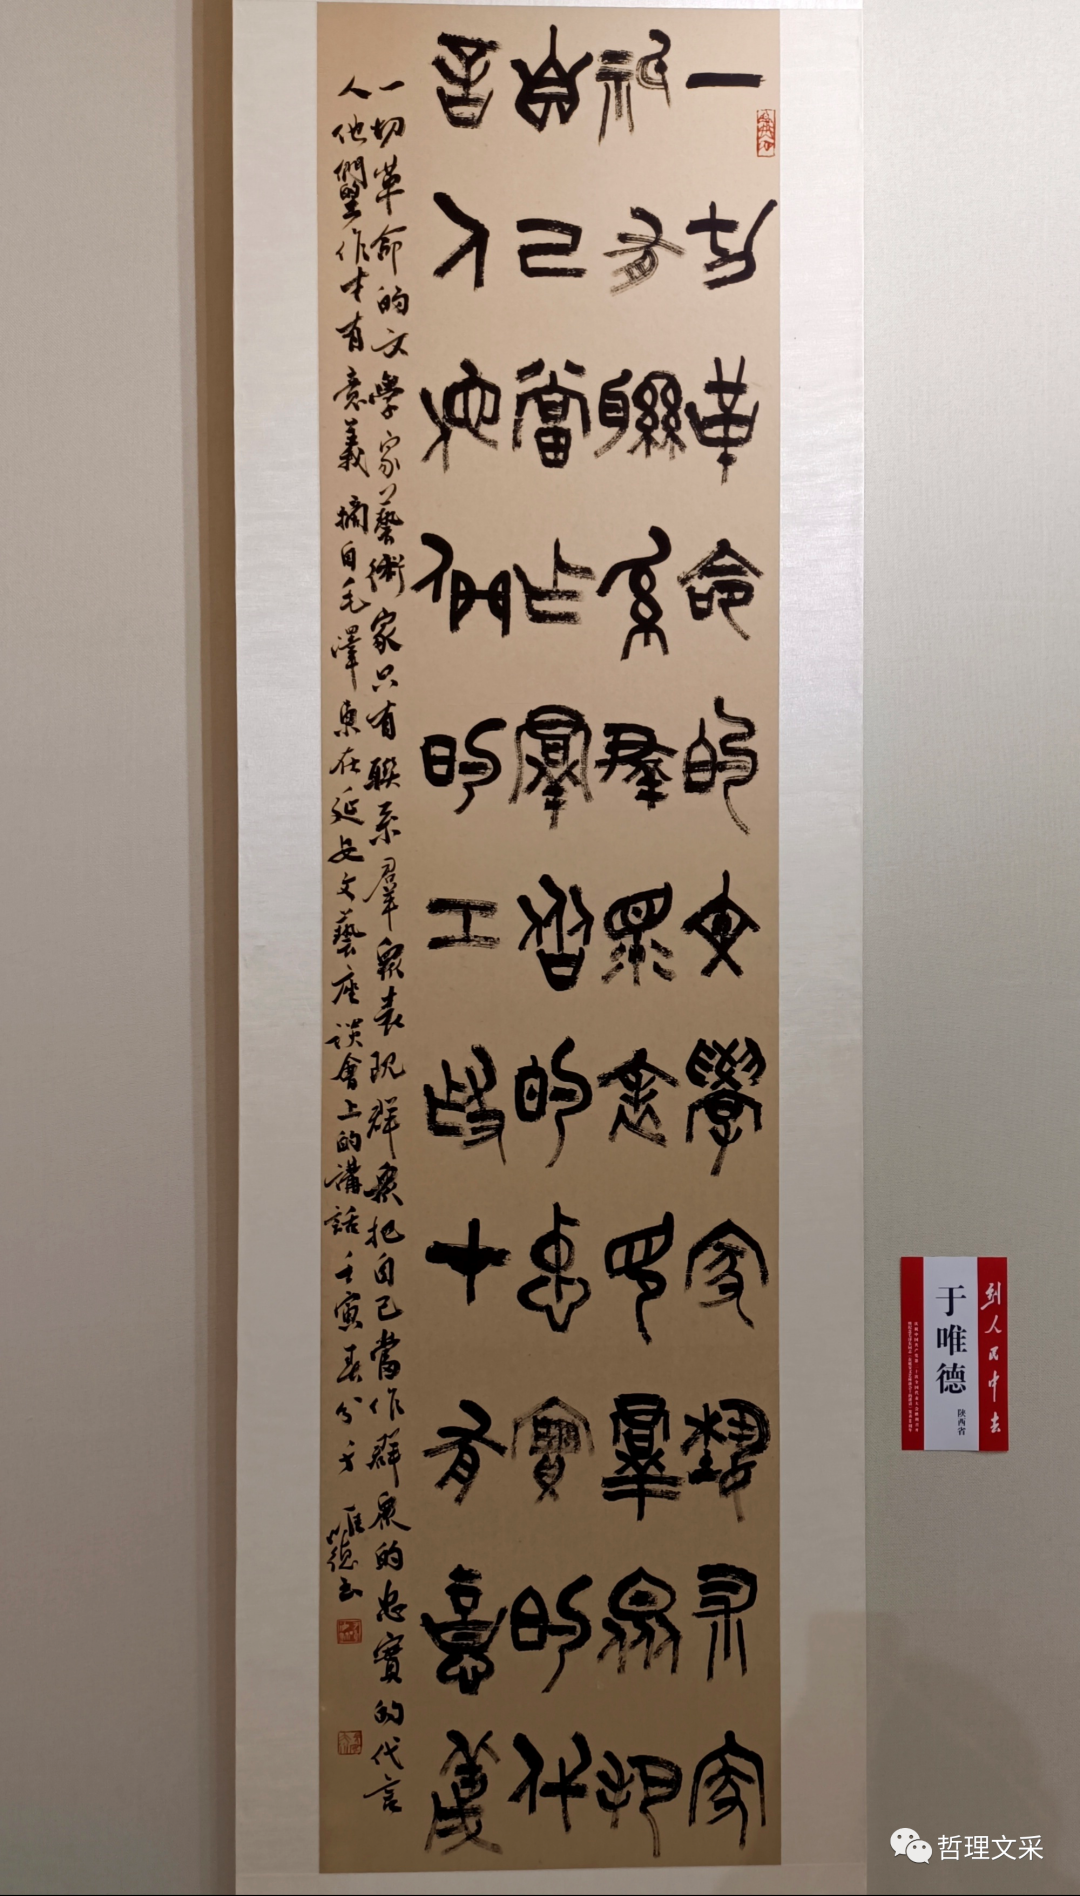 一切革命的文學家藝术家
祇有聯系群眾表見群眾把
自己當乍群眾的忠實的代
言人他們的工作才有意義
一切革命的文學家藝術家只有聯系羣眾表現群眾把自己當作群眾的忠實的代言
人他們的工作才有意義 摘自毛澤東在延安文藝座談會上的講話 壬寅春分于唯德書
到人民中去
于唯德
陕西省
哲理文采